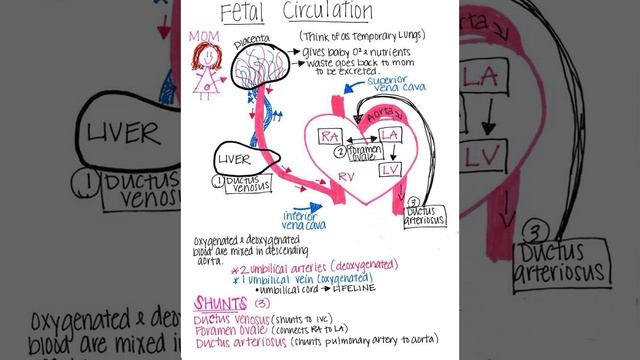 Fetal Circulation
MOM
Placenta
(Think of as temporary lungs)
→ gives baby O² & nutrients
→ waste goes back to mom
to be excreted.
superior
vena cava
Aorta
RA
LA
② Foramen
ovale
LV
RV
LIVER
① Ductus
venosus
inferior
vena cava
③
Ductus
arteriosus
oxygenated & deoxygenated
blood are mixed in descending
aorta.
* 2 umbilical arteries (deoxygenated)
* 1 umbilical vein (oxygenated)
• umbilical cord → LIFELINE
SHUNTS (3)
Ductus venosus (shunts to IVC)
Foramen ovale (connects RA to LA)
Ductus arteriosus (shunts pulmonary artery to aorta)
LIVER
① Ductus
venosu
oxygenated &
blood are mixed in
Aorta
LA
LV
③
Ductus
arteriosus